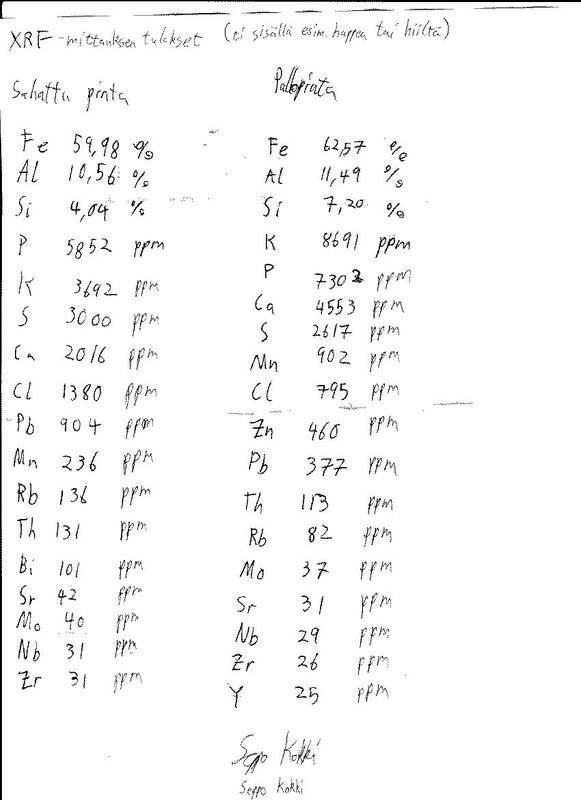 XRF -mittauksen tulokset (ei sisällä esim. happea tai hiiltä)
Sahattu pinta
Fe 59,98 %
Al 10,56 %
Si 4,04 %
P 5852 ppm
K 3692 ppm
S 3000 ppm
Ca 2016 ppm
Cl 1380 ppm
Pb 904 ppm
Mn 236 ppm
Rb 136 ppm
Th 131 ppm
Bi 101 ppm
Sr 42 ppm
Mo 40 ppm
Nb 31 ppm
Zr 31 ppm
Pallopinta
Fe 62,57 %
Al 11,49 %
Si 7,20 %
K 8691 ppm
P 7302 ppm
Ca 4553 ppm
S 2617 ppm
Mn 902 ppm
Cl 795 ppm
Zn 460 ppm
Pb 377 ppm
Th 113 ppm
Rb 82 ppm
Mo 37 ppm
Sr 31 ppm
Nb 29 ppm
Zr 26 ppm
Y 25 ppm
Seppo Kokki
Seppo Kokki